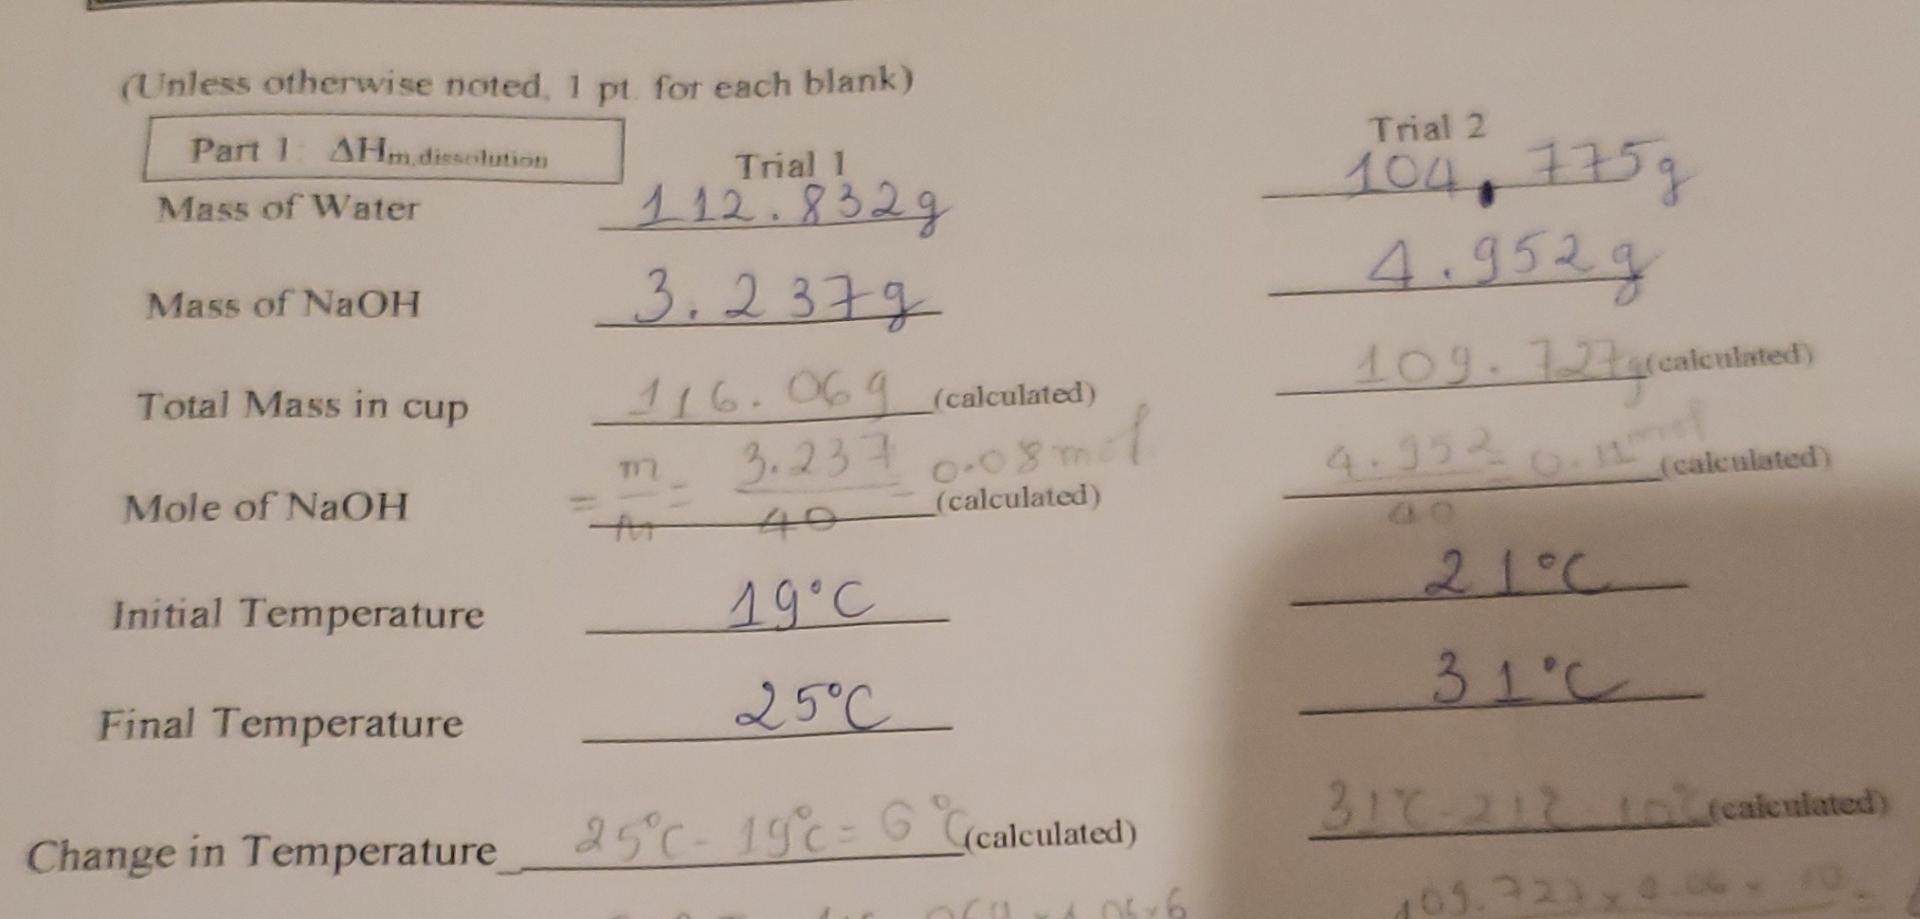 (Unless otherwise noted, 1 pt. for each blank)
Part 1: ΔHm,dissolution
Trial 1 Trial 2
Mass of Water 112.832g 104.775g
Mass of NaOH 3.237g 4.952g
Total Mass in cup 116.069 (calculated) 109.727g (calculated)
Mole of NaOH = m/m = 3.237/40 = 0.08mol (calculated) 4.952/40 = 0.12 mol (calculated)
Initial Temperature 19°C 21°C
Final Temperature 25°C 31°C
Change in Temperature 25°C - 19°C = 6°C (calculated) 31°C - 21° - 10°C (calculated)
109.727 x